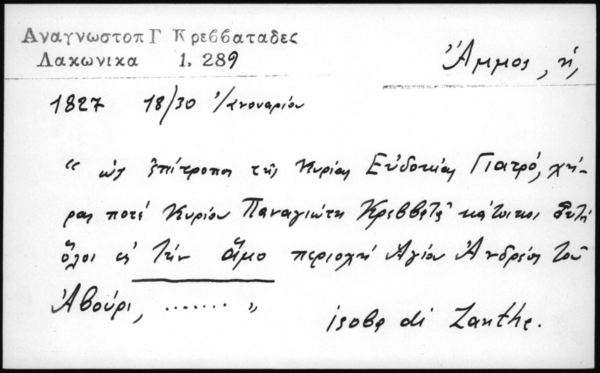 Αναγνωστοπ Γ Κρεββαταδες
Λακωνικα 1. 289
Ἄμμος, ἡ,
1827 18/30 Ἰανουαρίου
" ὡς ἐπίτροπος τῆς Κυρίας Εὐδοκίας Γιατρό, χή-
ρας ποτέ Κυρίου Παναγιώτη Κρεββατᾶ κάτοικοι
ὅλοι εἰς τὴν ἄμο περιοχή Ἁγίου Ἀνδρέα τοῦ
Ἀβούρι, ....... "
isobe di Zanthe.